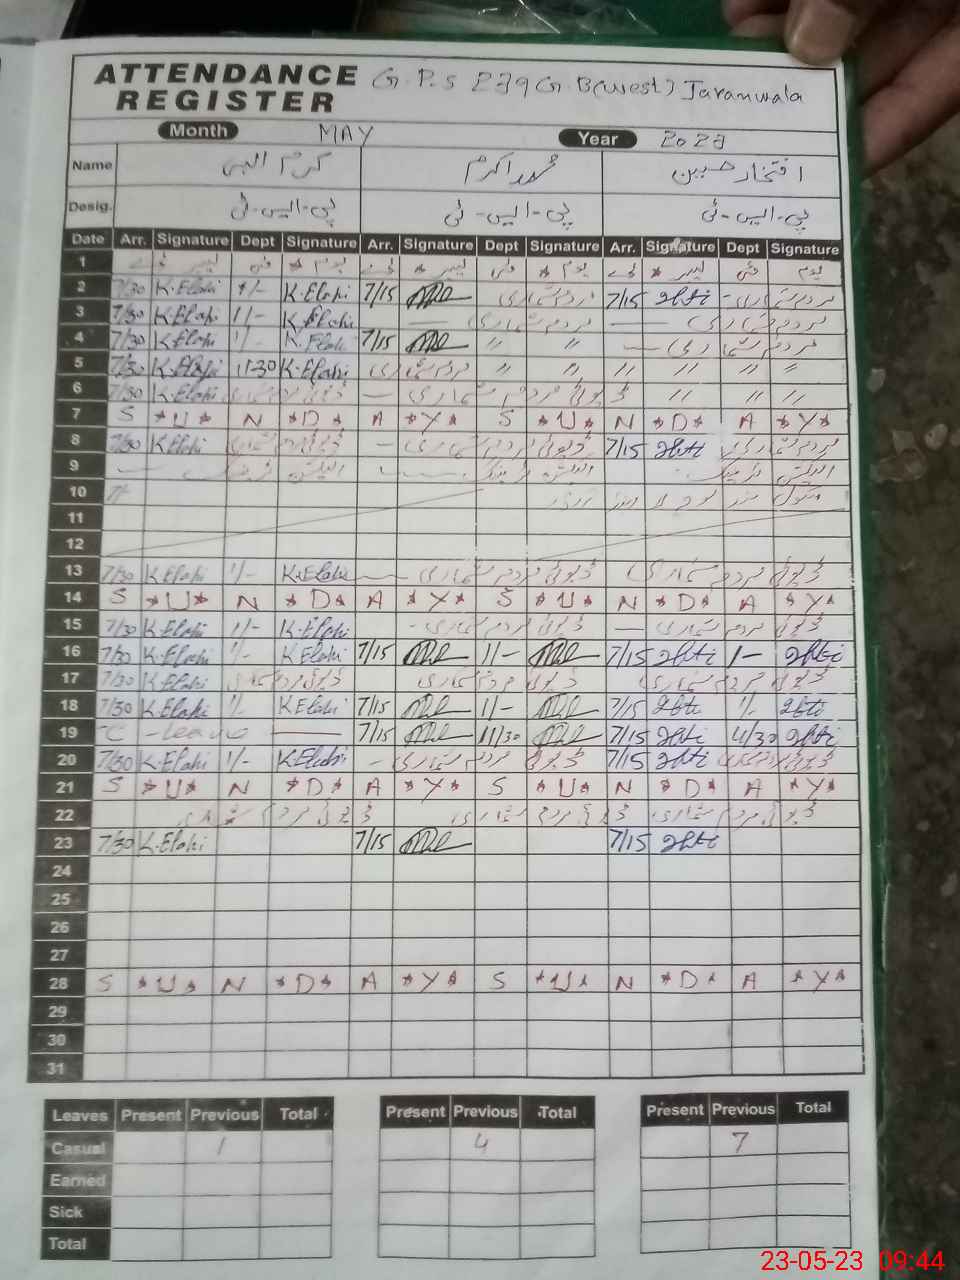 ATTENDANCE REGISTER G.P.S 239 G.B(West) Jaranwala
Month MAY Year 2023
Name کرم الہی محمد اکرم افتخار حسین
Desig. پی-ایس-ٹی پی-ایس-ٹی پی-ایس-ٹی
Date Arr. Signature Dept Signature Arr. Signature Dept Signature Arr. Signature Dept Signature
1 یوم مئی لیبر ڈے یوم مئی لیبر ڈے
2 7/30 K.Elahi 1/- K.Elahi 7/15 مردم شماری 7/15 مردم شماری
3 7/30 K.Elahi 1/- K.Elahi مردم شماری مردم شماری
4 7/30 K.Elahi 1/- K.Elahi 7/15 〃 〃 مردم شماری
5 7/30 K.Elahi 11-30 K.Elahi مردم شماری 〃 〃 〃 〃 〃 〃
6 7/30 K.Elahi ڈیوٹی مردم شماری ڈیوٹی مردم شماری 〃 〃 〃
7 S *U* N *D* A *Y* S *U* N *D* A *Y*
8 7/30 K.Elahi ڈیوٹی مردم شماری ڈیوٹی مردم شماری 7/15 مردم شماری
9 الیکشن ٹریننگ الیکشن ٹریننگ الیکشن ٹریننگ
10
11
12
13 7/30 K.Elahi 1/- K.Elahi ڈیوٹی مردم شماری ڈیوٹی مردم شماری
14 S *U* N *D* A *Y* S *U* N *D* A *Y*
15 7/30 K.Elahi 1/- K.Elahi ڈیوٹی مردم شماری ڈیوٹی مردم شماری
16 7/30 K.Elahi 1/- K.Elahi 7/15 1/- 7/15 1/-
17 7/30 K.Elahi ڈیوٹی مردم شماری ڈیوٹی مردم شماری ڈیوٹی مردم شماری
18 7/30 K.Elahi 1/- K.Elahi 7/15 1/- 7/15 1/-
19 C - leave 7/15 11/30 7/15 11/30
20 7/30 K.Elahi 1/- K.Elahi ڈیوٹی مردم شماری 7/15 ڈیوٹی مردم شماری
21 S *U* N *D* A *Y* S *U* N *D* A *Y*
22 ڈیوٹی مردم شماری ڈیوٹی مردم شماری ڈیوٹی مردم شماری
23 7/30 K.Elahi 7/15 7/15
24
25
26
27
28 S *U* N *D* A *Y* S *U* N *D* A *Y*
29
30
31
Leaves Present Previous Total Present Previous Total Present Previous Total
Casual 1 4 7
Earned
Sick
Total
23-05-23 09:44